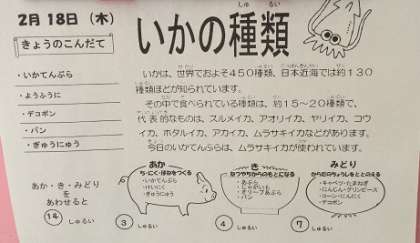 2月18日（木）
きょうのこんだて
・いかてんぷら
・ようふうに
・デコポン
・パン
・ぎゅうにゅう
いかの種類
しゅ るい
いかは、世界でおよそ450種類、日本近海では約130
種類ほどが知られています。
その中で食べられている種類は、約15～20種類で、
代表的なものは、スルメイカ、アオリイカ、ヤリイカ、コウ
イカ、ホタルイカ、アカイカ、ムラサキイカなどがあります。
今日のいかてんぷらは、ムラサキイカが使われています。
あか・き・みどり
を
あわせると
14 しゅるい
あか
ち・にく・ほねをつくる
・いかてんぷら
・けいにく
・ぎゅうにゅう
3 しゅるい
き
ねつやちからのもとになる
・あぶら
・じゃがいも
・オリーブあぶら
・パン
4 しゅるい
みどり
からだのちょうしをととのえる
・キャベツ・たまねぎ
・にんじん・グリンピース
・コーン・にんにく
・デコポン
7 しゅるい